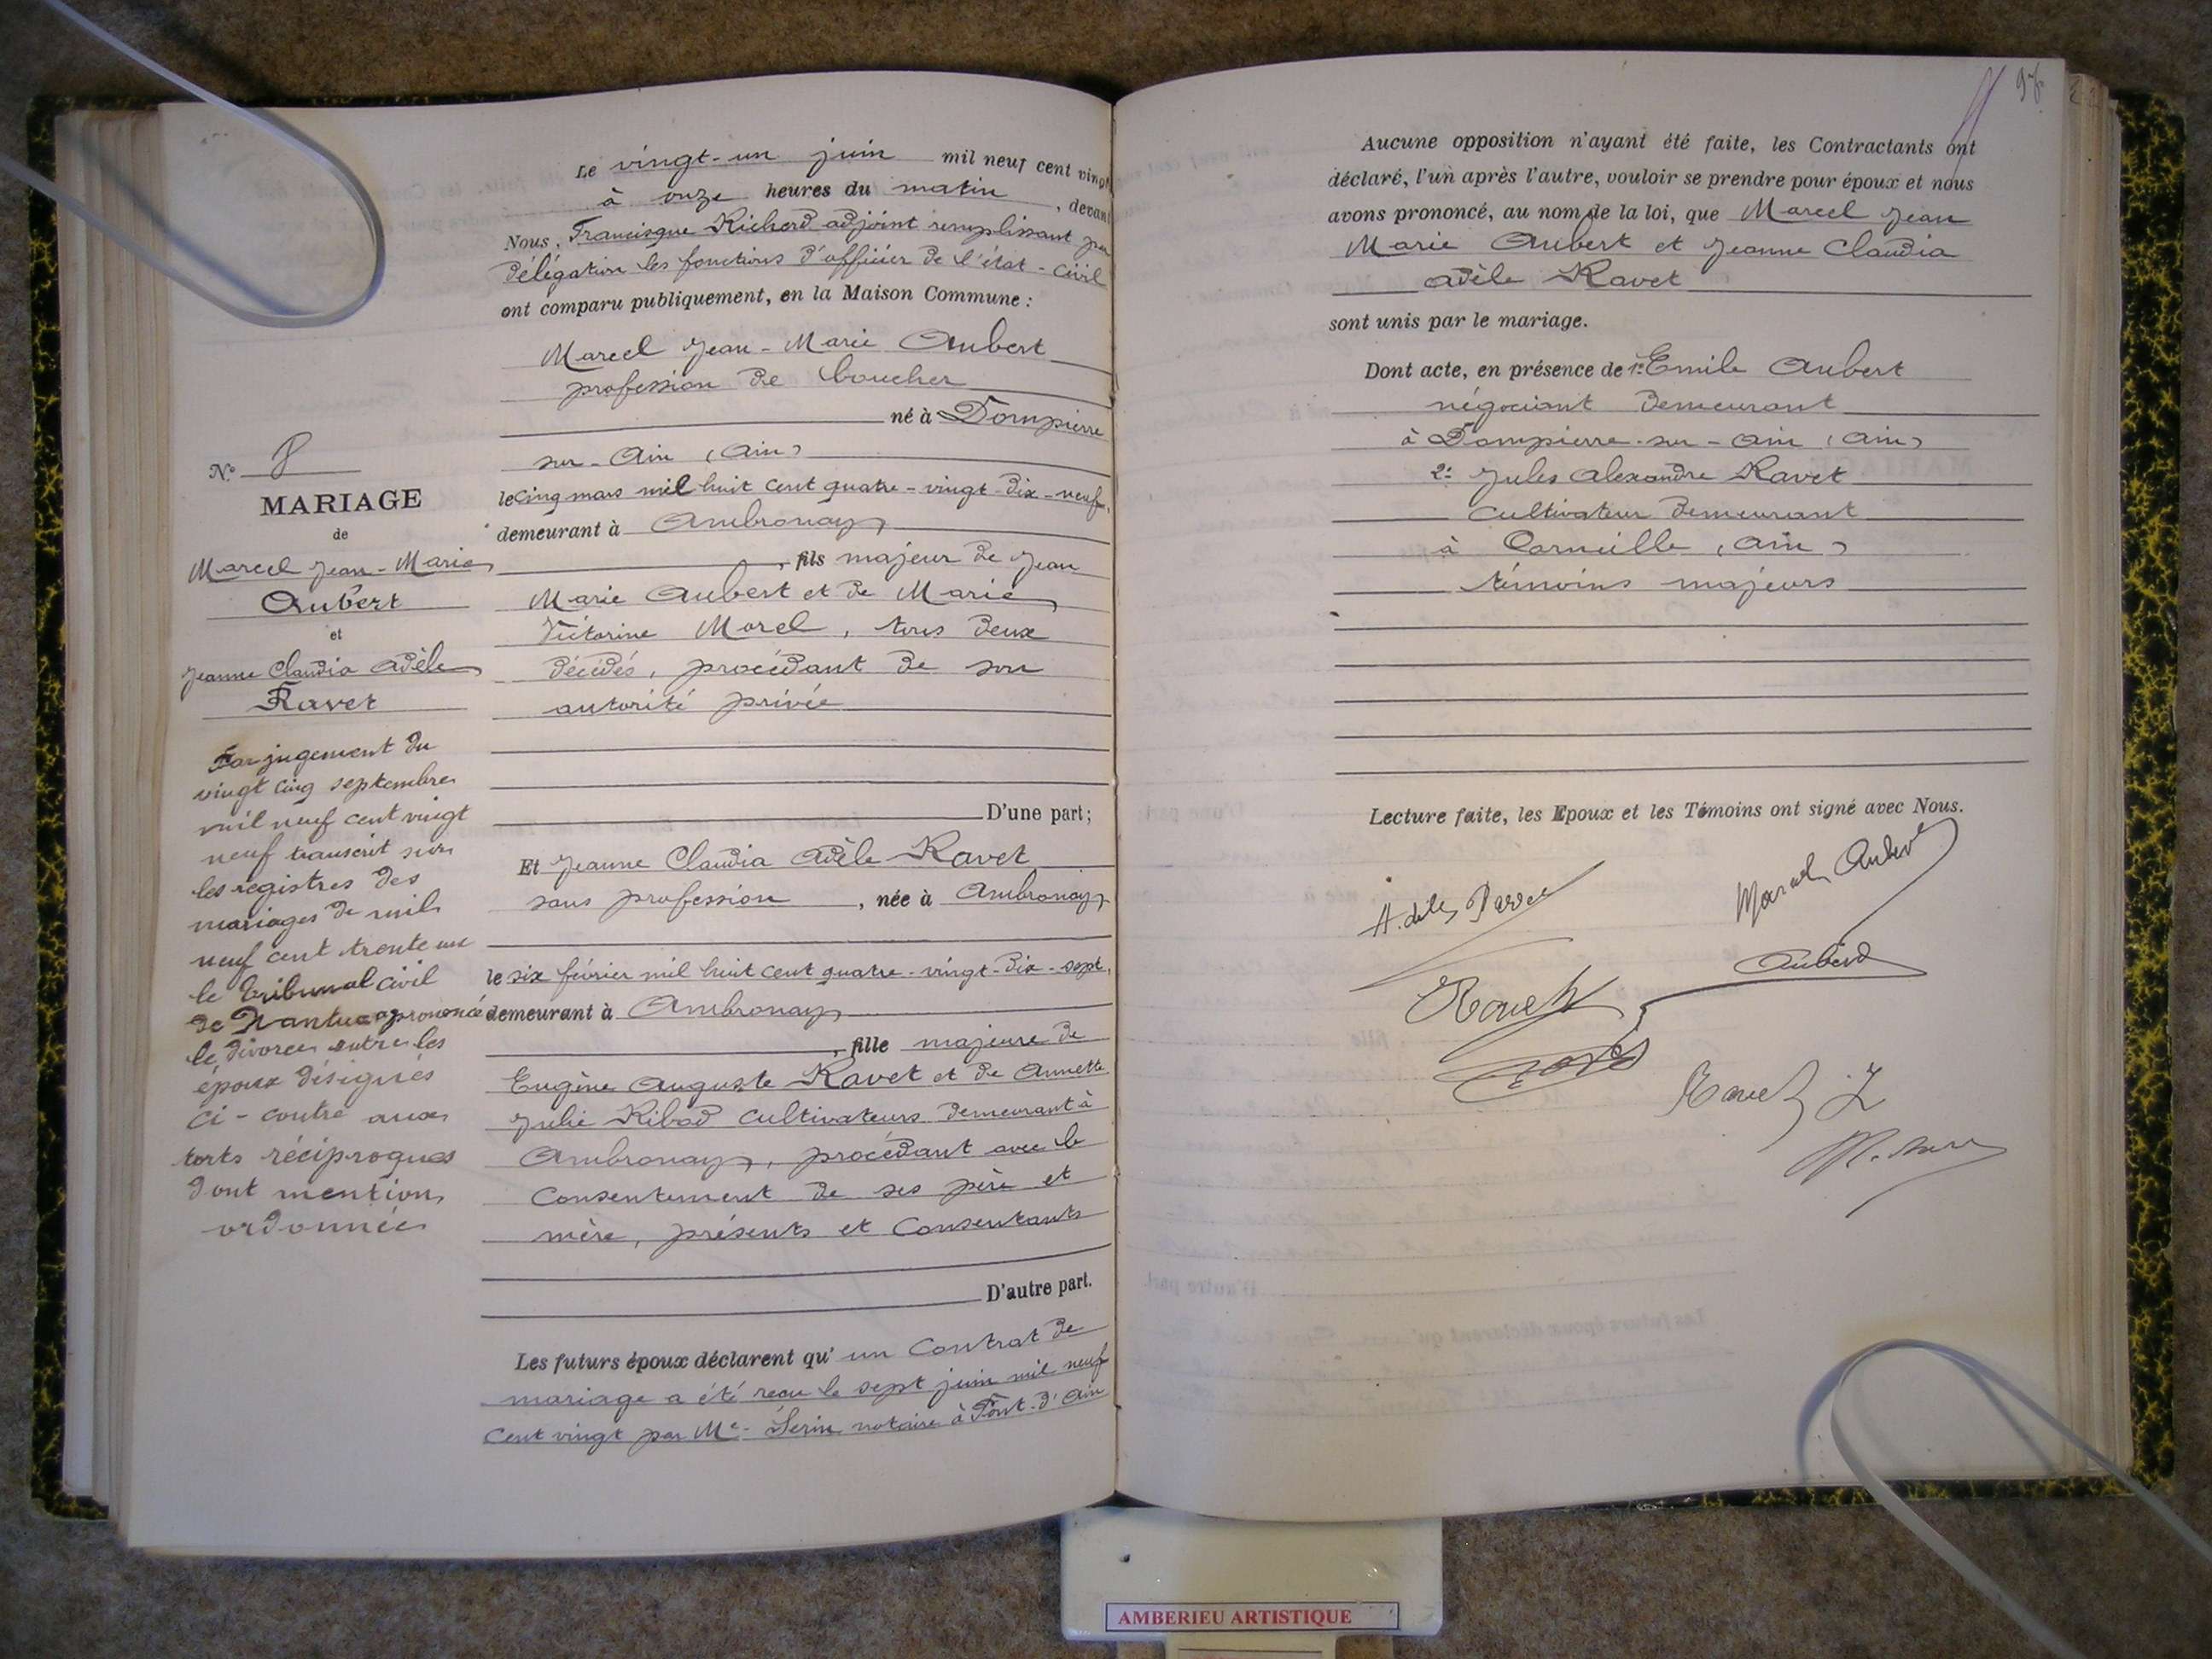 Le vingt-un juin mil neuf cent vingt
à onze heures du matin, devant
Nous, Francisque Richerd adjoint remplissant par
délégation les fonctions d'officier de l'état-civil
ont comparu publiquement, en la Maison Commune :
Marcel Jean-Marie Aubert
profession de boucher
né à Dompierre
sur-Ain (Ain)
le cinq mars mil huit cent quatre-vingt-dix-neuf,
demeurant à Ambronay
, fils majeur de Jean
Marie Aubert et de Marie
Victorine Morel, tous deux
décédés, procédant de son
autorité privée
D'une part;
Et Jeanne Claudia Adèle Ravet
sans profession, née à Ambronay
le six février mil huit cent quatre-vingt-dix-sept,
demeurant à Ambronay
, fille majeure de
Eugène Auguste Ravet et de Annette
Julie Ribod cultivateurs demeurant à
Ambronay, procédant avec le
consentement de ses père et
mère, présents et consentants
D'autre part.
Les futurs époux déclarent qu'un contrat de
mariage a été reçu le sept juin mil neuf
cent vingt par Me Serin notaire à Pont-d'Ain
N° 8
MARIAGE
de
Marcel Jean-Marie
Aubert
et
Jeanne Claudia Adèle
Ravet
Par jugement du
vingt cinq septembre
mil neuf cent vingt
neuf transcrit sur
les registres des
mariages de mil
neuf cent trente un
le tribunal civil
de Nantua a prononcé
le divorce entre les
époux désignés
ci-contre aux
torts réciproques
dont mention
ordonnée
96
Aucune opposition n'ayant été faite, les Contractants ont
déclaré, l'un après l'autre, vouloir se prendre pour époux et nous
avons prononcé, au nom de la loi, que Marcel Jean
Marie Aubert et Jeanne Claudia
Adèle Ravet
sont unis par le mariage.
Dont acte, en présence de 1° Emile Aubert
négociant demeurant
à Dompierre-sur-Ain (Ain)
2° Jules Alexandre Ravet
cultivateur demeurant
à (Ain)
témoins majeurs
Lecture faite, les Epoux et les Témoins ont signé avec Nous.
Marcel Aubert
Aubert
Ravet
Ravet J
AMBERIEU ARTISTIQUE